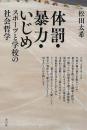 松田太希
体罰・
暴力・
いじめ
スポーツと学校の
社会哲学